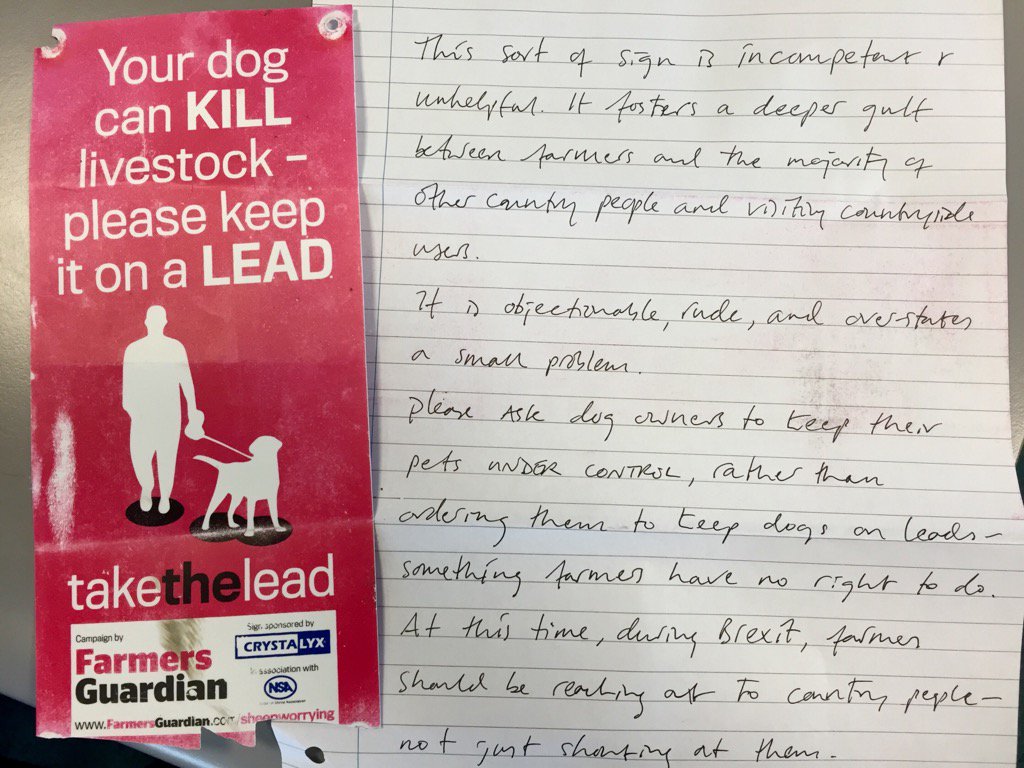 Your dog
can KILL
livestock –
please keep
it on a LEAD
takethelead
Campaign by
Farmers
Guardian
Sign sponsored by
CRYSTALYX
In association with
NSA
www.FarmersGuardian.com/sheepworrying
This sort of sign is incompetent &
unhelpful. It fosters a deeper gulf
between farmers and the majority of
other country people and visiting countryside
users.
It is objectionable, rude, and over-states
a small problem.
Please ASK dog owners to keep their
pets UNDER CONTROL, rather than
ordering them to keep dogs on leads –
something farmers have no right to do.
At this time, during Brexit, farmers
should be reaching out to country people –
not just shouting at them.